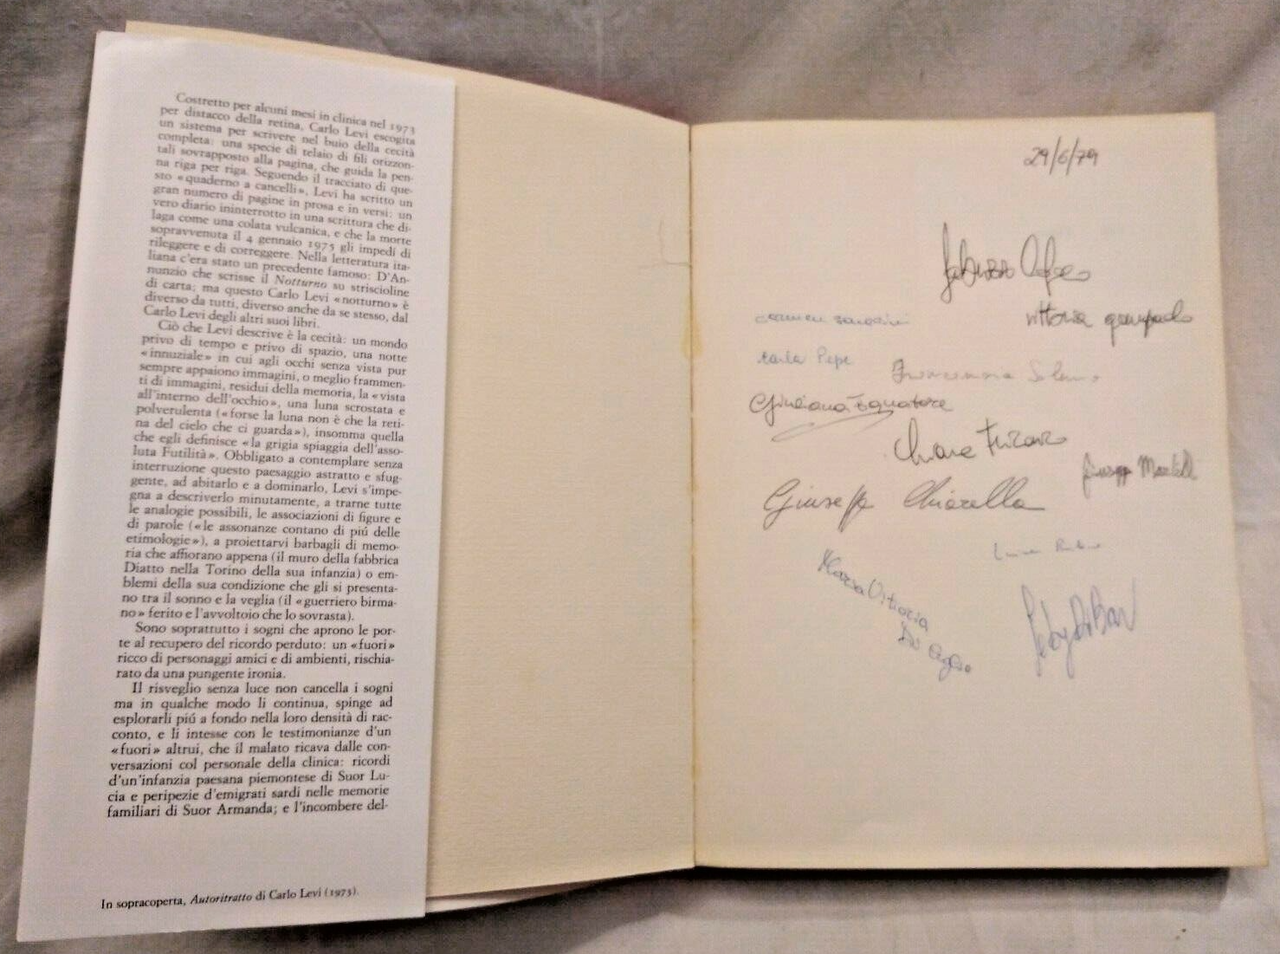 Costretto per alcuni mesi in clinica nel 1973
per distacco della retina, Carlo Levi escogita
un sistema per scrivere nel buio della cecità
completa: una specie di telaio di fili orizzon-
tali sovrapposto alla pagina, che guida la pen-
na riga per riga. Seguendo il tracciato di que-
sto «quaderno a cancelli», Levi ha scritto un
gran numero di pagine in prosa e in versi: un
vero diario ininterrotto in una scrittura che di-
laga come una colata vulcanica, e che la morte
sopravvenuta il 4 gennaio 1975 gli impedí di
rileggere e di correggere. Nella letteratura ita-
liana c'era stato un precedente famoso: D'An-
nunzio che scrisse il Notturno su striscioline
di carta; ma questo Carlo Levi «notturno» è
diverso da tutti, diverso anche da se stesso, dal
Carlo Levi degli altri suoi libri.
Ciò che Levi descrive è la cecità: un mondo
privo di tempo e privo di spazio, una notte
«innuziale» in cui agli occhi senza vista pur
sempre appaiono immagini, o meglio frammen-
ti di immagini, residui della memoria, la «vista
all'interno dell'occhio», una luna scrostata e
polverulenta («forse la luna non è che la reti-
na del cielo che ci guarda»), insomma quella
che egli definisce «la grigia spiaggia dell'asso-
luta Futilità». Obbligato a contemplare senza
interruzione questo paesaggio astratto e sfug-
gente, ad abitarlo e a dominarlo, Levi s'impe-
gna a descriverlo minutamente, a trarne tutte
le analogie possibili, le associazioni di figure e
di parole («le assonanze contano di piú delle
etimologie»), a proiettarvi barbagli di memo-
ria che affiorano appena (il muro della fabbrica
Diatto nella Torino della sua infanzia) o em-
blemi della sua condizione che gli si presenta-
no tra il sonno e la veglia (il «guerriero birma-
no» ferito e l'avvoltoio che lo sovrasta).
Sono soprattutto i sogni che aprono le por-
te al recupero del ricordo perduto: un «fuori»
ricco di personaggi amici e di ambienti, rischia-
rato da una pungente ironia.
Il risveglio senza luce non cancella i sogni
ma in qualche modo li continua, spinge ad
esplorarli piú a fondo nella loro densità di rac-
conto, e li intesse con le testimonianze d'un
«fuori» altrui, che il malato ricava dalle con-
versazioni col personale della clinica: ricordi
d'un'infanzia paesana piemontese di Suor Lu-
cia e peripezie d'emigrati sardi nelle memorie
familiari di Suor Armanda; e l'incombere del-
In sopracoperta, Autoritratto di Carlo Levi (1973).
29/6/79
fabrizio
vittoria
carmen
carla Pepe
Francesca
Giuliana Squatore
Chiara
Giuseppe
Giuseppe Chiarella
Maria Vittoria